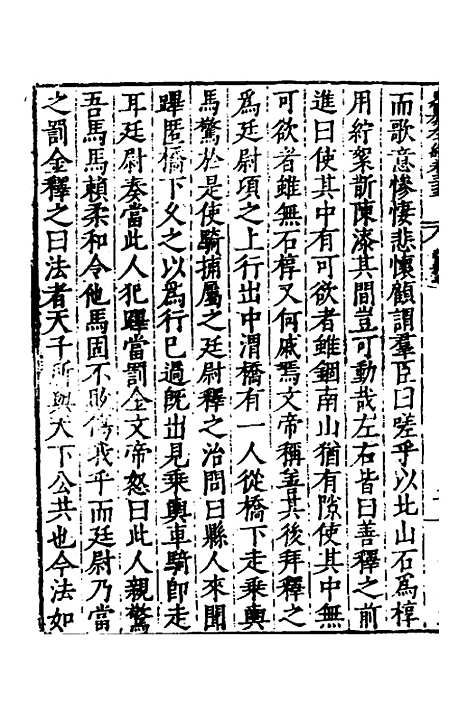 而歌意慘悽悲懷顧謂羣臣曰嗟乎以北山石爲椁
用紵絮斮陳漆其間豈可動哉左右皆曰善釋之前
進曰使其中有可欲者雖錮南山猶有隙使其中無
可欲者雖無石椁又何戚焉文帝稱善其後拜釋之
爲廷尉頃之上行出中渭橋有一人從橋下走乘輿
馬驚於是使騎捕屬之廷尉釋之治問曰縣人來聞
蹕匿橋下久之以爲行已過既出見乘輿車騎即走
耳廷尉奏當此人犯蹕當罰金文帝怒曰此人親驚
吾馬馬賴柔和令他馬固不敗傷我乎而廷尉乃當
之罰金釋之曰法者天子所與天下公共也今法如